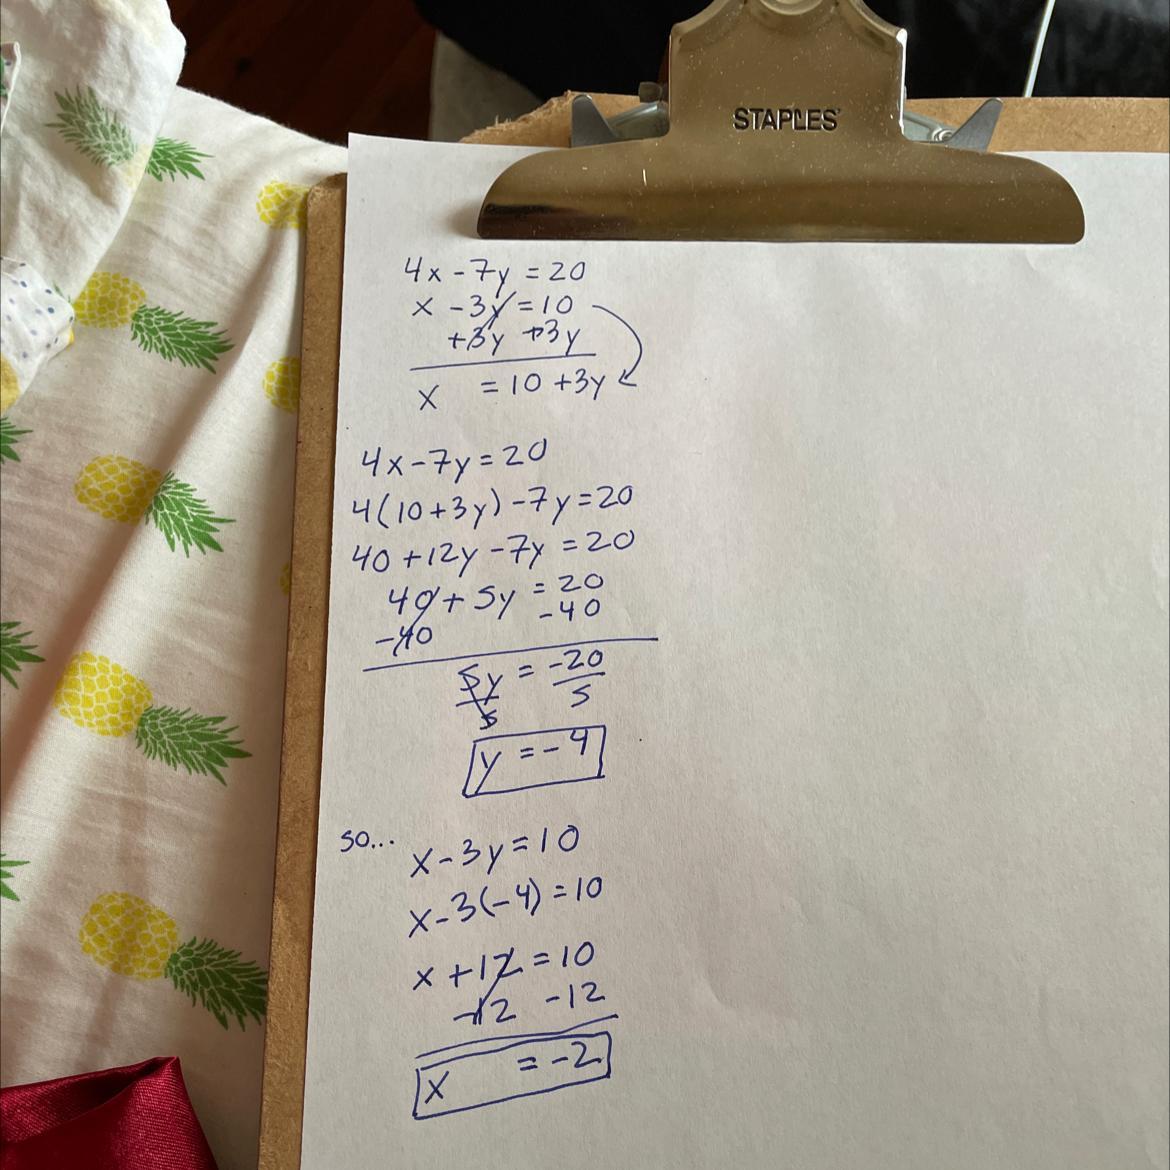 STAPLES
4x - 7y = 20
x - 3y = 10
+3y +3y
x = 10 + 3y
4x - 7y = 20
4(10 + 3y) - 7y = 20
40 + 12y - 7y = 20
40 + 5y = 20
-40 -40
5y = -20
5 5
y = -4
so... x - 3y = 10
x - 3(-4) = 10
x + 12 = 10
-12 -12
x = -2